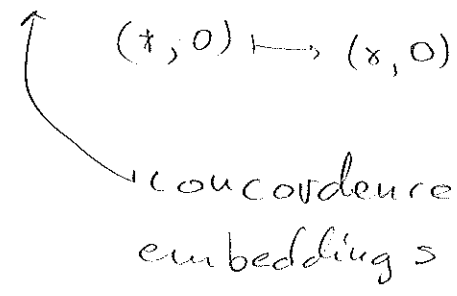 (x, 0) ⟼ (x, 0)
concordence
embeddings